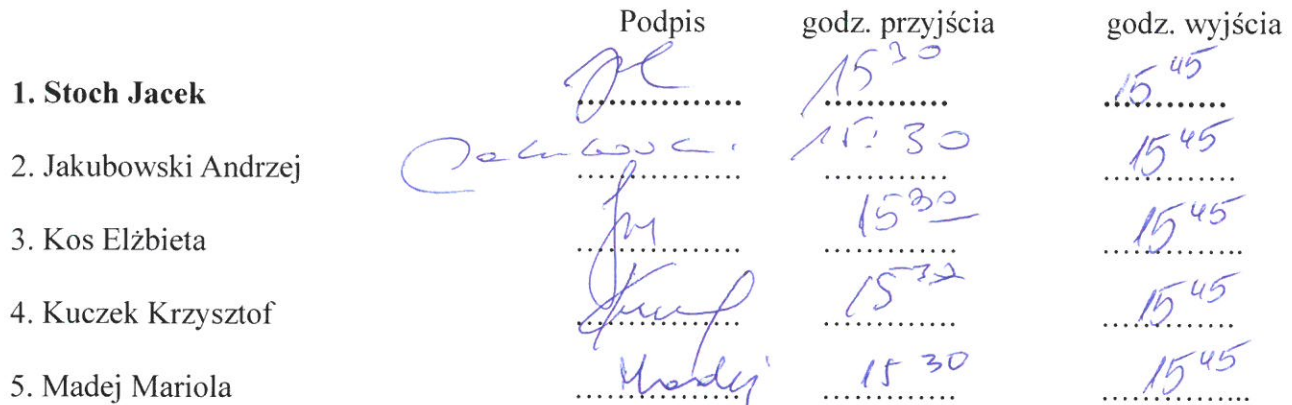 Podpis godz. przyjścia godz. wyjścia
1. Stoch Jacek 15³⁰ 15⁴⁵
2. Jakubowski Andrzej 15:30 15⁴⁵
3. Kos Elżbieta 15³⁰ 15⁴⁵
4. Kuczek Krzysztof 15⁴⁵
5. Madej Mariola Madej 15³⁰ 15⁴⁵